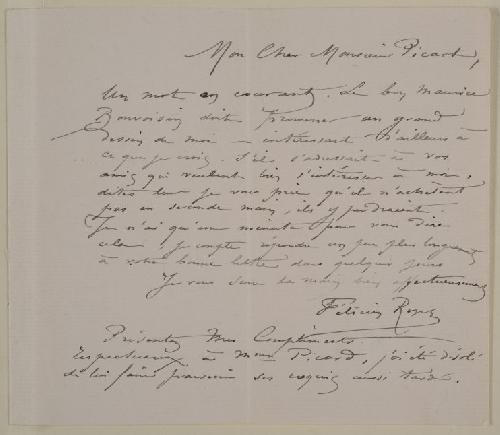 Mon Cher Monsieur Picard,
Un mot en courant. Le bon Maurice
Bonvoisin doit promener un grand
dessin de moi – intéressant d'ailleurs à
ce que je crois. S'il s'adressait à vos
amis qui veulent bien s'intéresser à moi,
dites leur je vous prie qu'ils n'achètent
pas en seconde main, ils y perdraient.
Je n'ai qu'une minute pour vous dire
cela. Je compte répondre un peu plus longuement
à votre bonne lettre dans quelques jours
Je vous serre la main bien affectueusement
Félicien Rops
Présentez mes Compliments
respectueux à Mme Picard, j'ai été désolé
de lui faire parvenir ses croquis aussi tard.